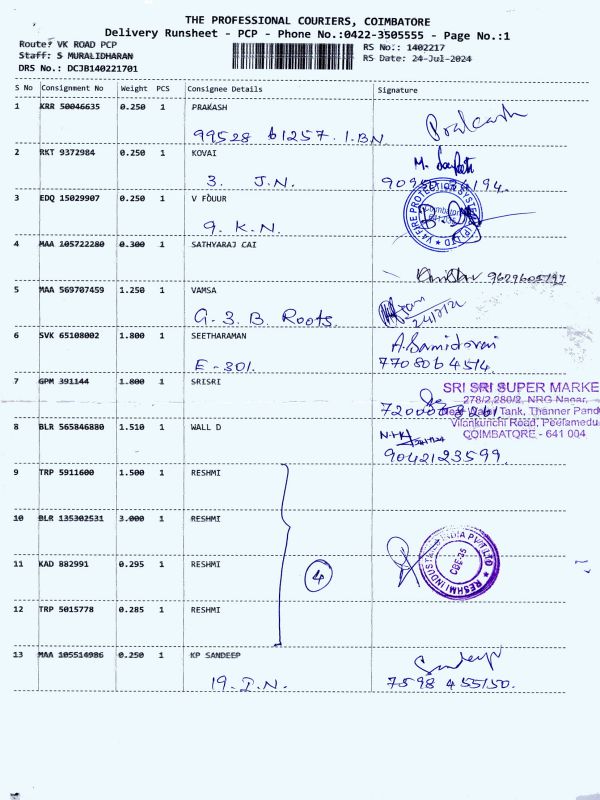 THE PROFESSIONAL COURIERS, COIMBATORE
Delivery Runsheet - PCP - Phone No.:0422-3505555 - Page No.:1
Route: VK ROAD PCP
RS No.: 1402217
Staff: S MURALIDHARAN
RS Date: 24-Jul-2024
DRS No.: DCJB140221701
S No Consignment No Weight PCS Consignee Details Signature
1 KRR 50046635 0.250 1 PRAKASH
99528 61257. I.B.N Prakash
2 RKT 9372984 0.250 1 KOVAI M.
3. J.N.
3 EDQ 15029907 0.250 1 V FOUUR
9. K.N.
V4 FIRE PROTECTION SYSTEMS (P) LTD
Coimbatore
4 MAA 105722280 0.300 1 SATHYARAJ CAI
5 MAA 569707459 1.250 1 VAMSA
G. 3. B Roots.
6 SVK 65108002 1.800 1 SEETHARAMAN A. Samidorai
E-301. 7708064514.
7 GPM 391144 1.800 1 SRISRI
SRI SRI SUPER MARKE
278/2,280/2, NRG Nagar,
Tank, Thanner Pand
Vilankurichi Road, Peelamedu
COIMBATORE - 641 004
8 BLR 565846880 1.510 1 WALL D
9042123599.
9 TRP 5911600 1.500 1 RESHMI
10 BLR 135302531 3.000 1 RESHMI
11 KAD 882991 0.295 1 RESHMI
4
RESHMI INDUSTRIES INDIA PVT LTD
CBE-35
12 TRP 5015778 0.285 1 RESHMI
13 MAA 105514986 0.250 1 KP SANDEEP Sandeep
19. I.N. 7598 455150.